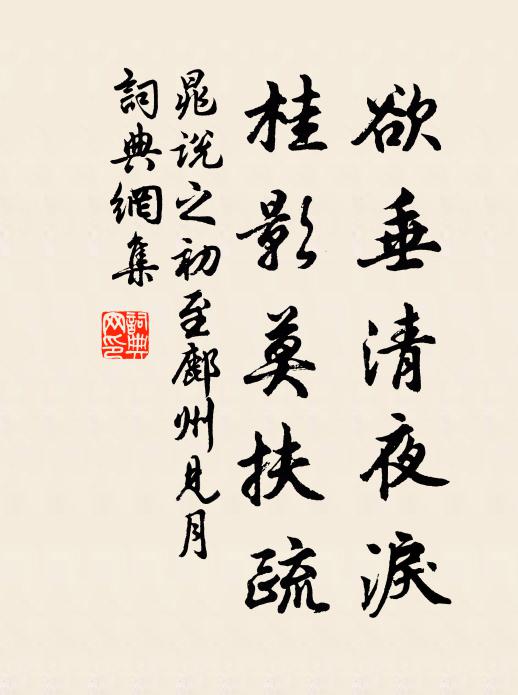 欲垂清夜淚
桂影莫扶疏
晁說之初至鄜州見月
詞典網集
詞典網印